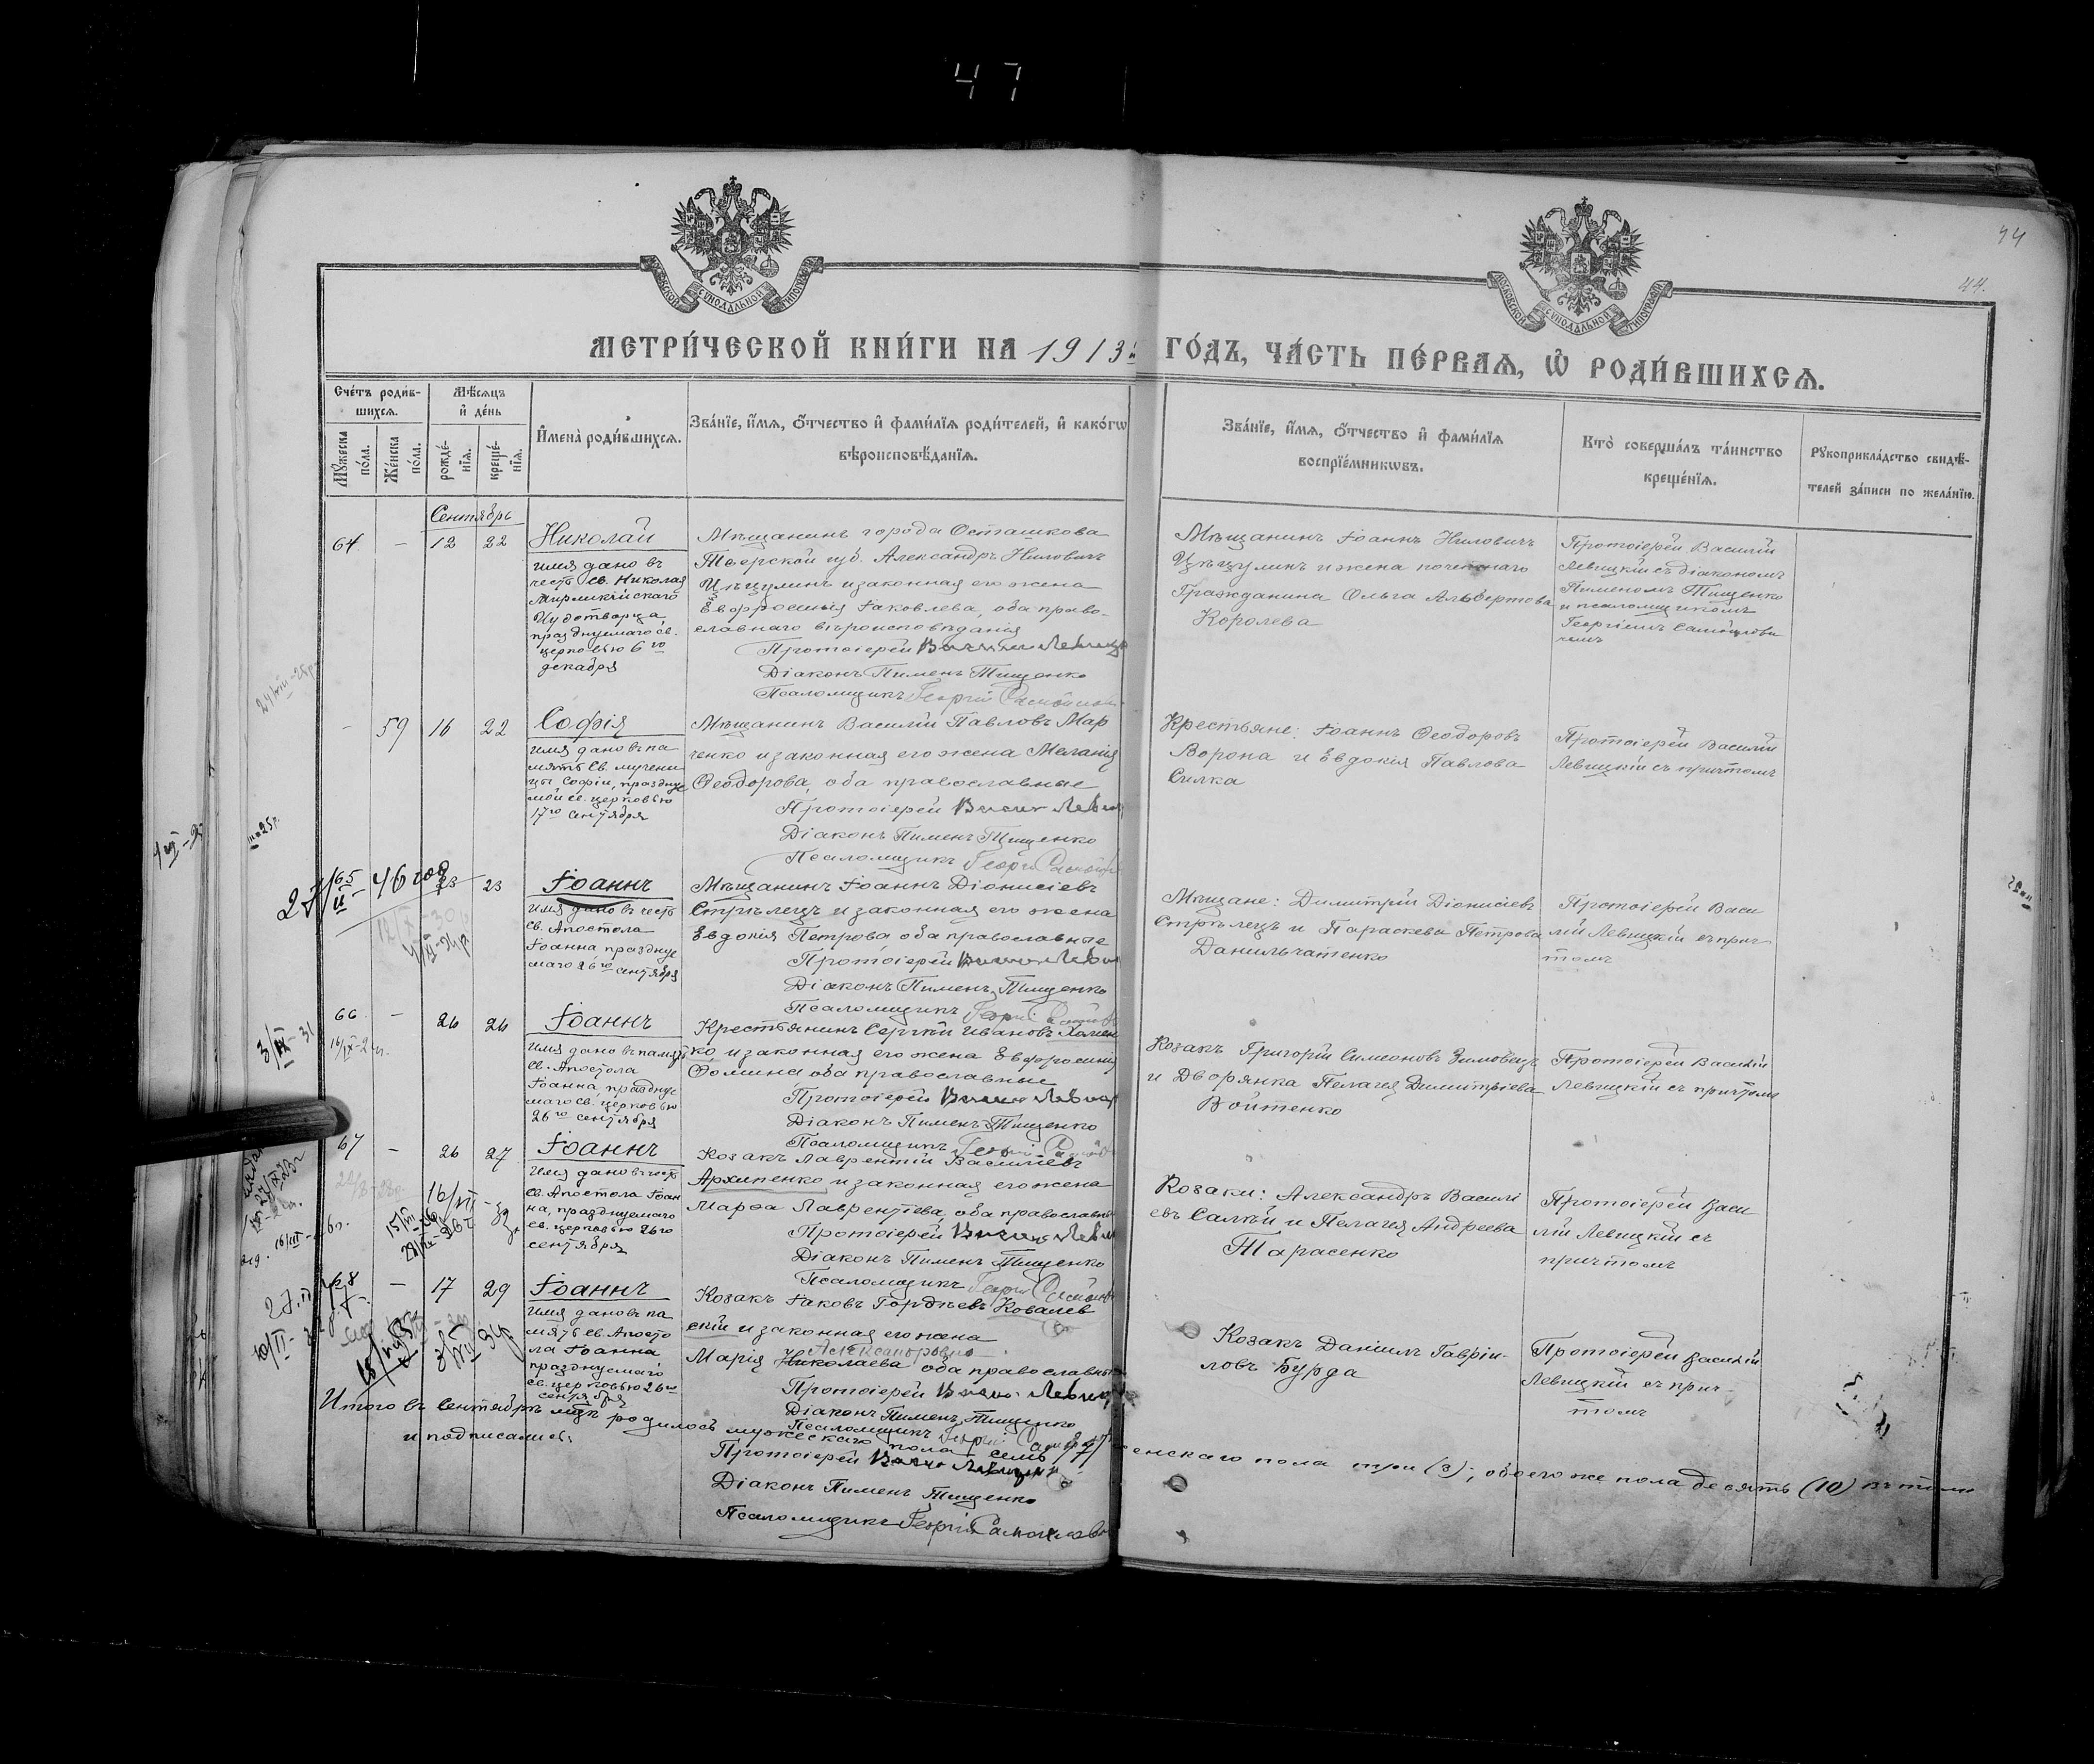 47
44
44.
МОСКОВСКОЙ СѴНОДАЛЬНОЙ ТИПОГРАФІИ
МОСКОВСКОЙ СѴНОДАЛЬНОЙ ТИПОГРАФІИ
МЕТРИ́ЧЕСКОЙ КНИ́ГИ НА 1913й ГО́ДЪ, ЧА́СТЬ ПЕ́РВАѦ, Ѽ РОДИ́ВШИХСѦ.
Сче́тъ роди́в-
шихсѧ.
Мꙋжеска по́ла.
Же́нска по́ла.
Мѣ́сѧцъ
и҆ де́нь
рожде́-
нїѧ.
креще́-
нїѧ.
И҆мена̀ роди́вшихсѧ.
Зва́нїе, и҆́мѧ, ѻ҆́тчество и҆ фами́лїѧ роди́телей, и҆ како́гѡ
вѣроисповѣ́данїѧ.
Зва́нїе, и҆́мѧ, ѻ҆́тчество и҆ фами́лїѧ
воспрїе́мникѡвъ.
Кто̀ соверша́лъ та́инство
креще́нїѧ.
Рꙋкоприкла́дство свидѣ́-
телей за́писи по жела́нїю.
Сентябрь
64 - 12 22
Николай
имя дано въ
честь св. Николая
Мирликійскаго
Чудотворца,
празднуемаго св.
церковью 6го
декабря
Мѣщанинъ города Осташкова
Тверской губ. Александръ Ниловичъ
Цѣцулинъ и законная его жена
Евфросинія Іаковлева, оба право-
славнаго вѣроисповѣданія
Протоіерей Василій Левицкі
Діаконъ Пименъ Тищенко
Псаломщикъ Георгій
Мѣщанинъ Іоаннъ Ниловичъ
Цѣцулинъ и жена почетнаго
Гражданина Ольга Альбертова
Королева
Протоіерей Василій
Левицкій съ діакономъ
Пименомъ Тищенко
и псаломщикомъ
Георгіемъ Самойлови
чемъ
- 59 16 22
Софія
имя дано въ па
мять св. мучени
цы Софіи, праздну
мой св. церковью
17го сентября
Мѣщанинъ Василій Павловъ Мар
ченко и законная его жена Меланія
Ѳеодорова, оба православные
Протоіерей Левиц
Діаконъ Пименъ Тищенко
Псаломщикъ
Крестьяне: Іоаннъ Ѳеодоровъ
Ворона и Евдокія Павлова
Силка
Протоіерей Василій
Левицкій съ причтомъ
65 23 23
27/II-46 год
Іоаннъ
имя дано въ честь
св. Апостола
Іоанна праздну
маго 26го сентября
Мѣщанинъ Іоаннъ Діонисіевъ
Стрѣлецъ и законная его жена
Евдокія Петрова, оба православные
Протоіерей
Діаконъ Пименъ Тищенко
Псаломщикъ
Мѣщане: Димитрій Діонисіевъ
Стрѣлецъ и Параскева Петрова
Данильчатенко
Протоіерей Васи
лій Левицкій съ прич-
томъ
66 - 26 26
Іоаннъ
имя дано въ память
св. Апостола
Іоанна, праздну
маго св. церковью
26го сентября
Крестьянинъ Сергѣй Ивановъ Хомен
ко, и законная его жена Евфросинія
Ѳомина оба православные
Протоіерей
Діаконъ Пименъ Тищенко
Псаломщикъ
Козакъ Григорій Симеоновъ Зимовецъ
и Дворянка Пелагія Димитріева
Войтенко
Протоіерей Василій
Левицкій съ причтомъ
67 - 26 27
Іоаннъ
Имя дано въ честь
св. Апостола Іоан
на, празднуемаго
св. церковью 26го
сентября
Козакъ Лаврентій Василіевъ
Архипенко и законная его жена
Марѳа Лаврентіева, оба православны
Протоіерей
Діаконъ Пименъ Тищенко
Псаломщикъ
Козаки: Александръ Василі
евъ Салѣй и Пелагія Андреева
Тарасенко
Протоіерей Васи
лій Левицкій съ
причтомъ
68 - 17 29
Іоаннъ
имя дано въ па
мять св. Апосто
ла Іоанна
празднуемаго
св. церковью 26го
сентября
Козакъ Іаковъ Гордѣевъ Ковалев
скій и законная его жена
Александровна
Марія Николаева оба православны
Протоіерей
Діаконъ Пименъ Тищенко
Псаломщикъ
Козакъ Даніилъ Гавріи-
ловъ Бурда
Протоіерей Василій
Левицкій съ прич-
томъ
Итого въ Сентябрѣ мцѣ родилось мужескаго пола семь (7) женскаго пола три (3); обоего же пола десять (10) въ томъ
и подписались:
Протоіерей
Діаконъ Пименъ Тищенко
Псаломщикъ Георгій Самойлов